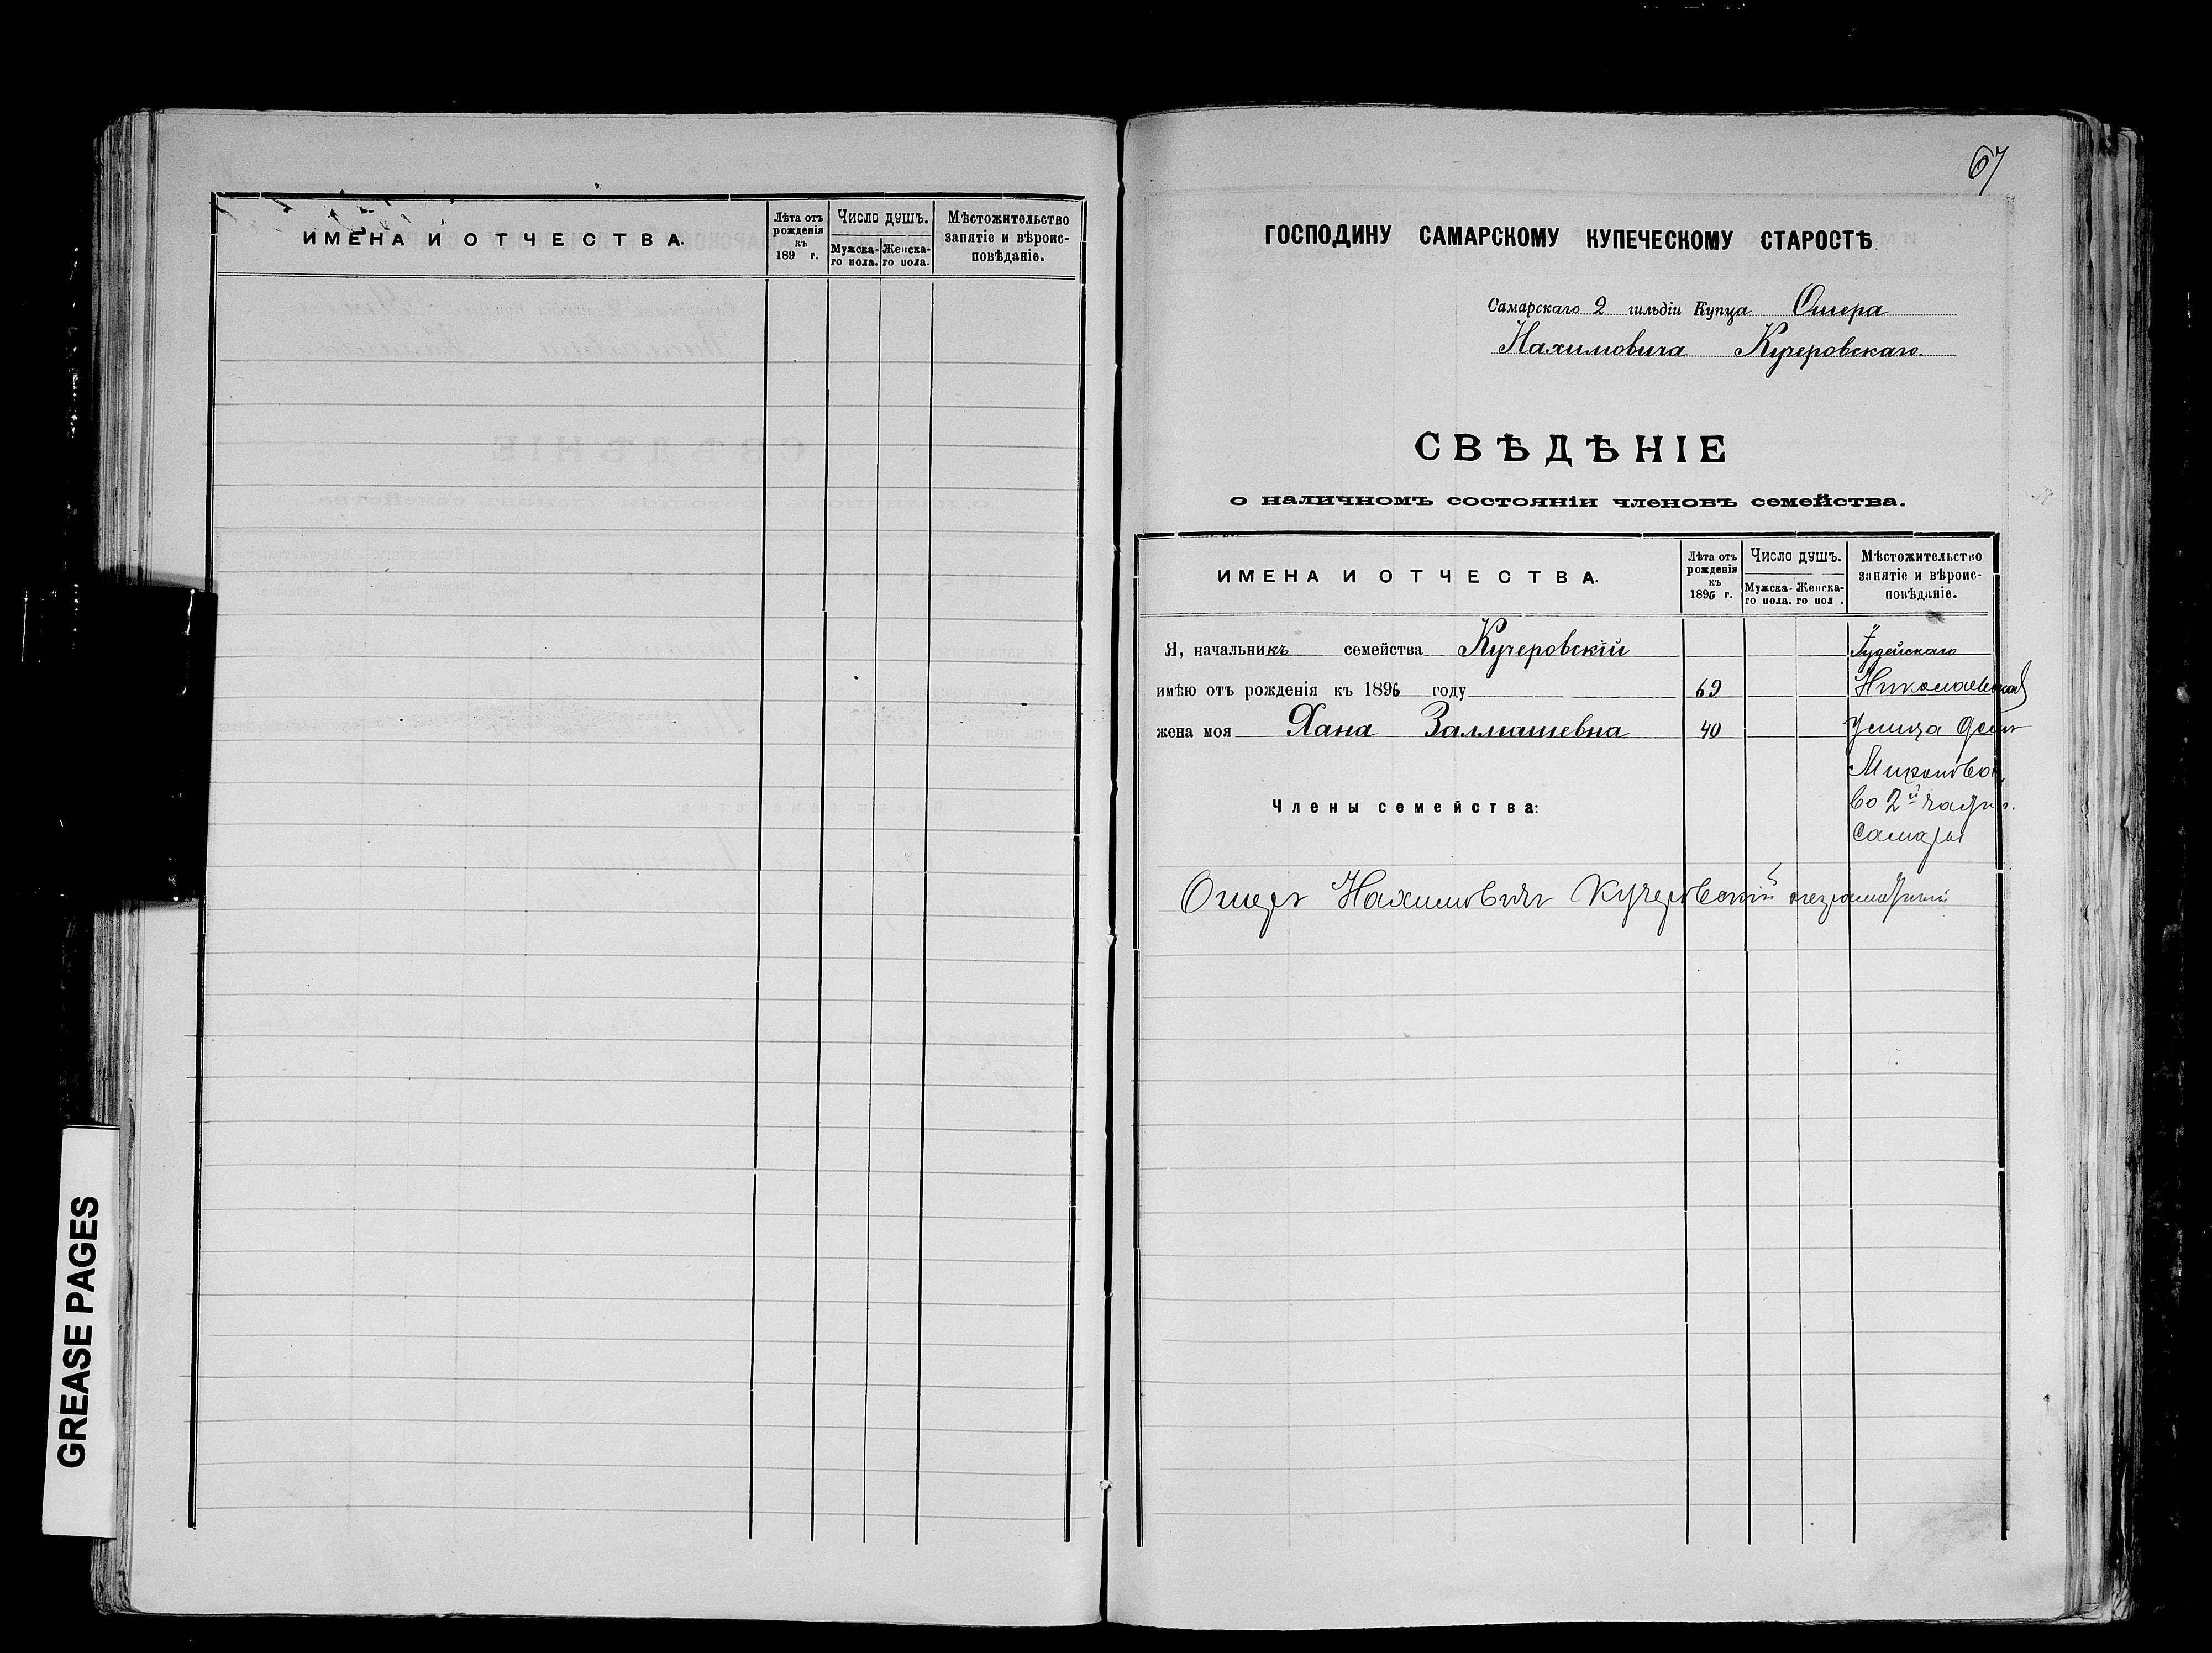 ИМЕНА И ОТЧЕСТВА.
Лѣта отъ рожденія къ 189 г.
Число душъ.
Мужска-го пола.
Женска-го пола.
Мѣстожительство занятіе и вѣроис-повѣданіе.
67
ГОСПОДИНУ САМАРСКОМУ КУПЕЧЕСКОМУ СТАРОСТѢ.
Самарскаго 2 гильдіи Купца Ошера
Нахимовича Кучеровскаго.
СВѢДѢНІЕ
о наличномъ состояніи членовъ семейства.
ИМЕНА И ОТЧЕСТВА.
Лѣта отъ рожденія къ 1896 г.
Число душъ.
Мужска-го пола.
Женска-го пол .
Мѣстожительство занятіе и вѣроис-повѣданіе.
Я, начальникъ семейства Кучеровскій
Іудейскаго
имѣю отъ рожденія къ 1896 году 69
Николаевская
жена моя Хана Залмашевна 40
Улица домъ
во 2й части г.
Члены семейства:
Самары
Ошеръ Нахимовичъ Кучеровскій неграмотный
GREASE PAGES